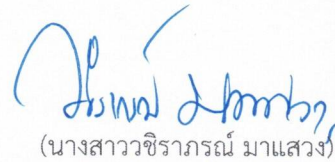 (นางสาววชิราภรณ์ มาแสวง)